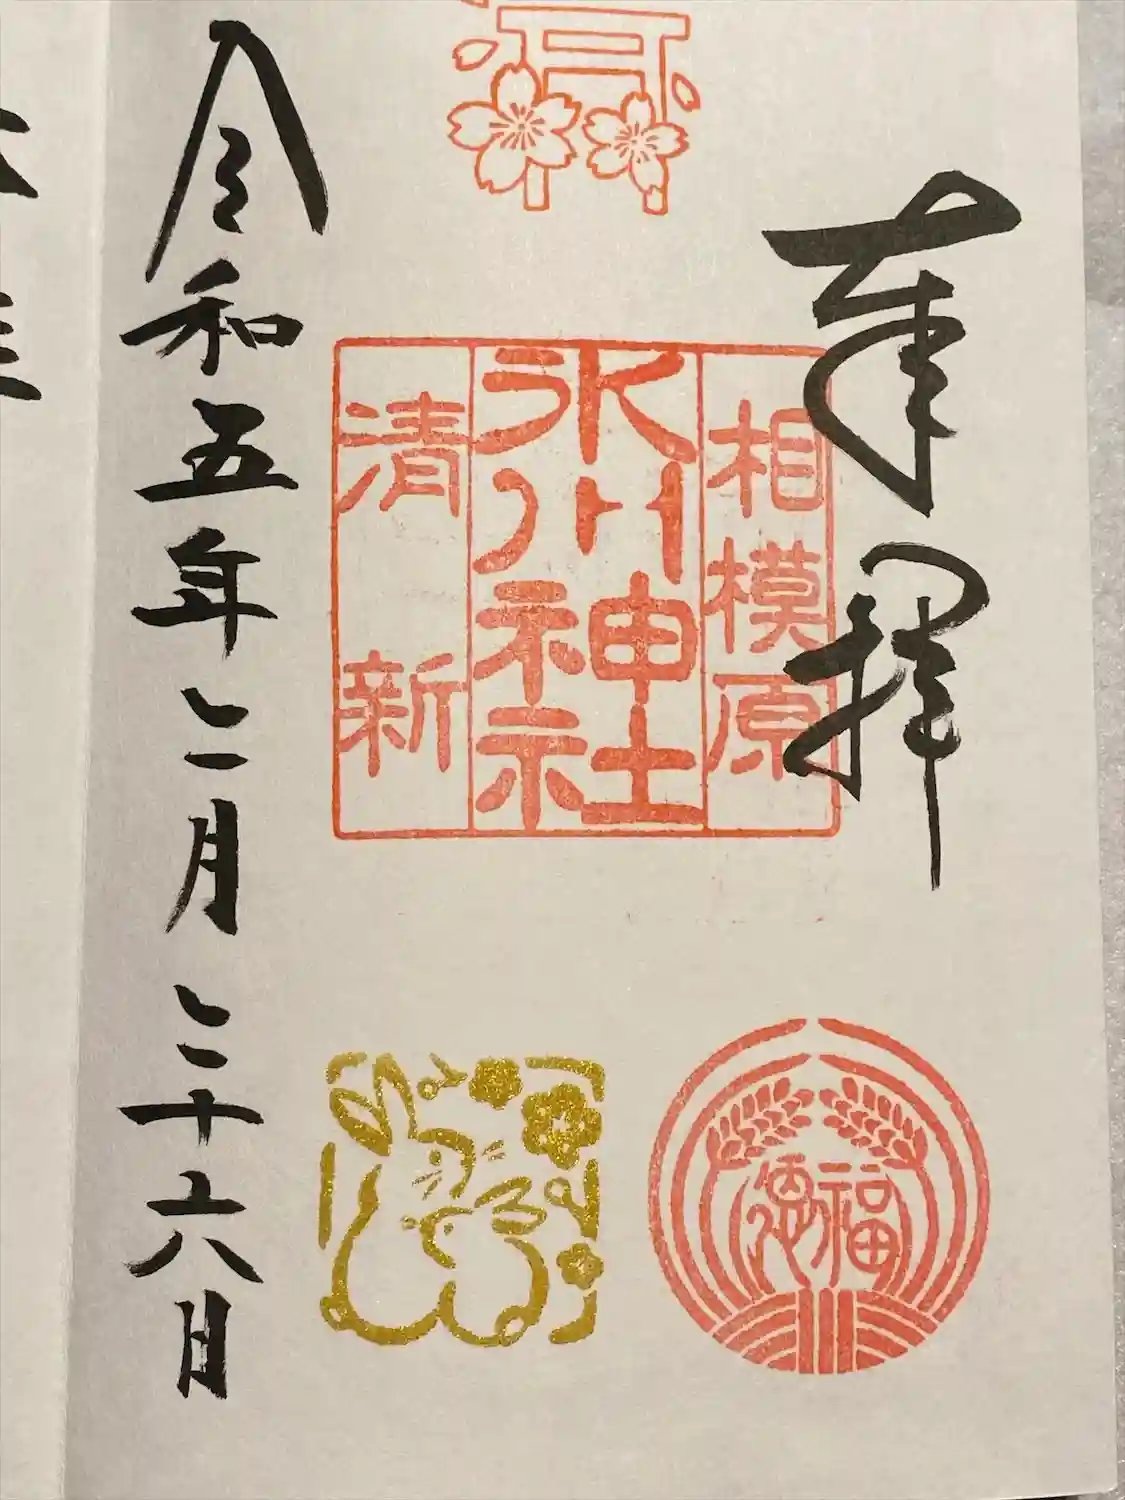 奉拝
相模原
氷川神社
清新
福恵
令和五年二月二十六日